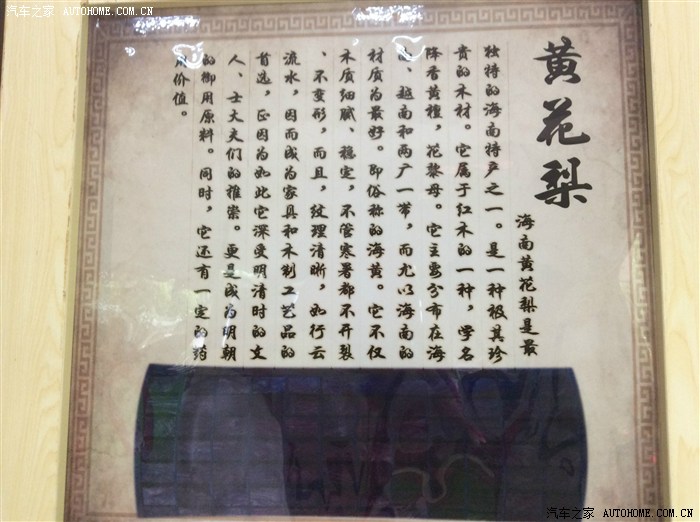 汽车之家 AUTOHOME.COM.CN
黄花梨
海南黄花梨是最
独特的海南特产之一。是一种极其珍
贵的木材。它属于红木的一种，学名
降香黄檀，花黎母。它主要分布在海
南、越南和两广一带，而尤以海南的
材质为最好。即俗称的海黄。它不仅
木质细腻、稳定，不管寒暑都不开裂
、不变形，而且，纹理清晰，如行云
流水，因而成为家具和木制工艺品的
首选，正因为如此它深受明清时的文
人、士大夫们的推崇。更是成为明朝
的御用原料。同时，它还有一定的药
用价值。
汽车之家 AUTOHOME.COM.CN